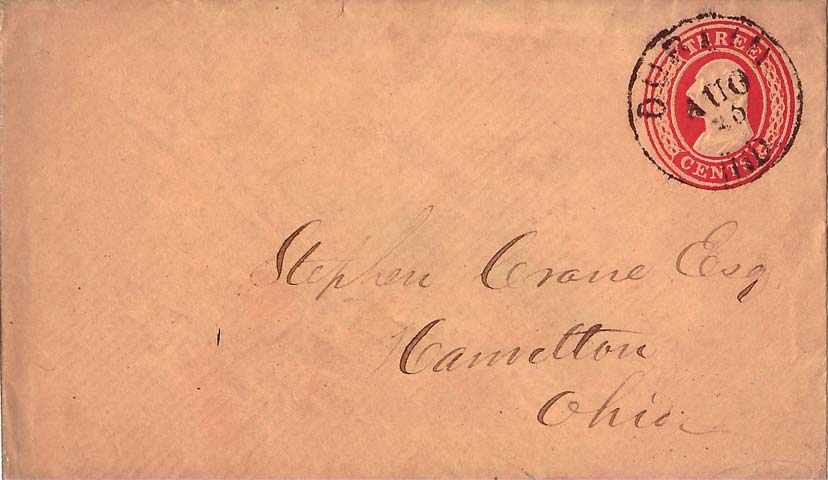 THREE
CENTS
AUG
IND
Stephen Crane Esq
Hamilton
Ohio